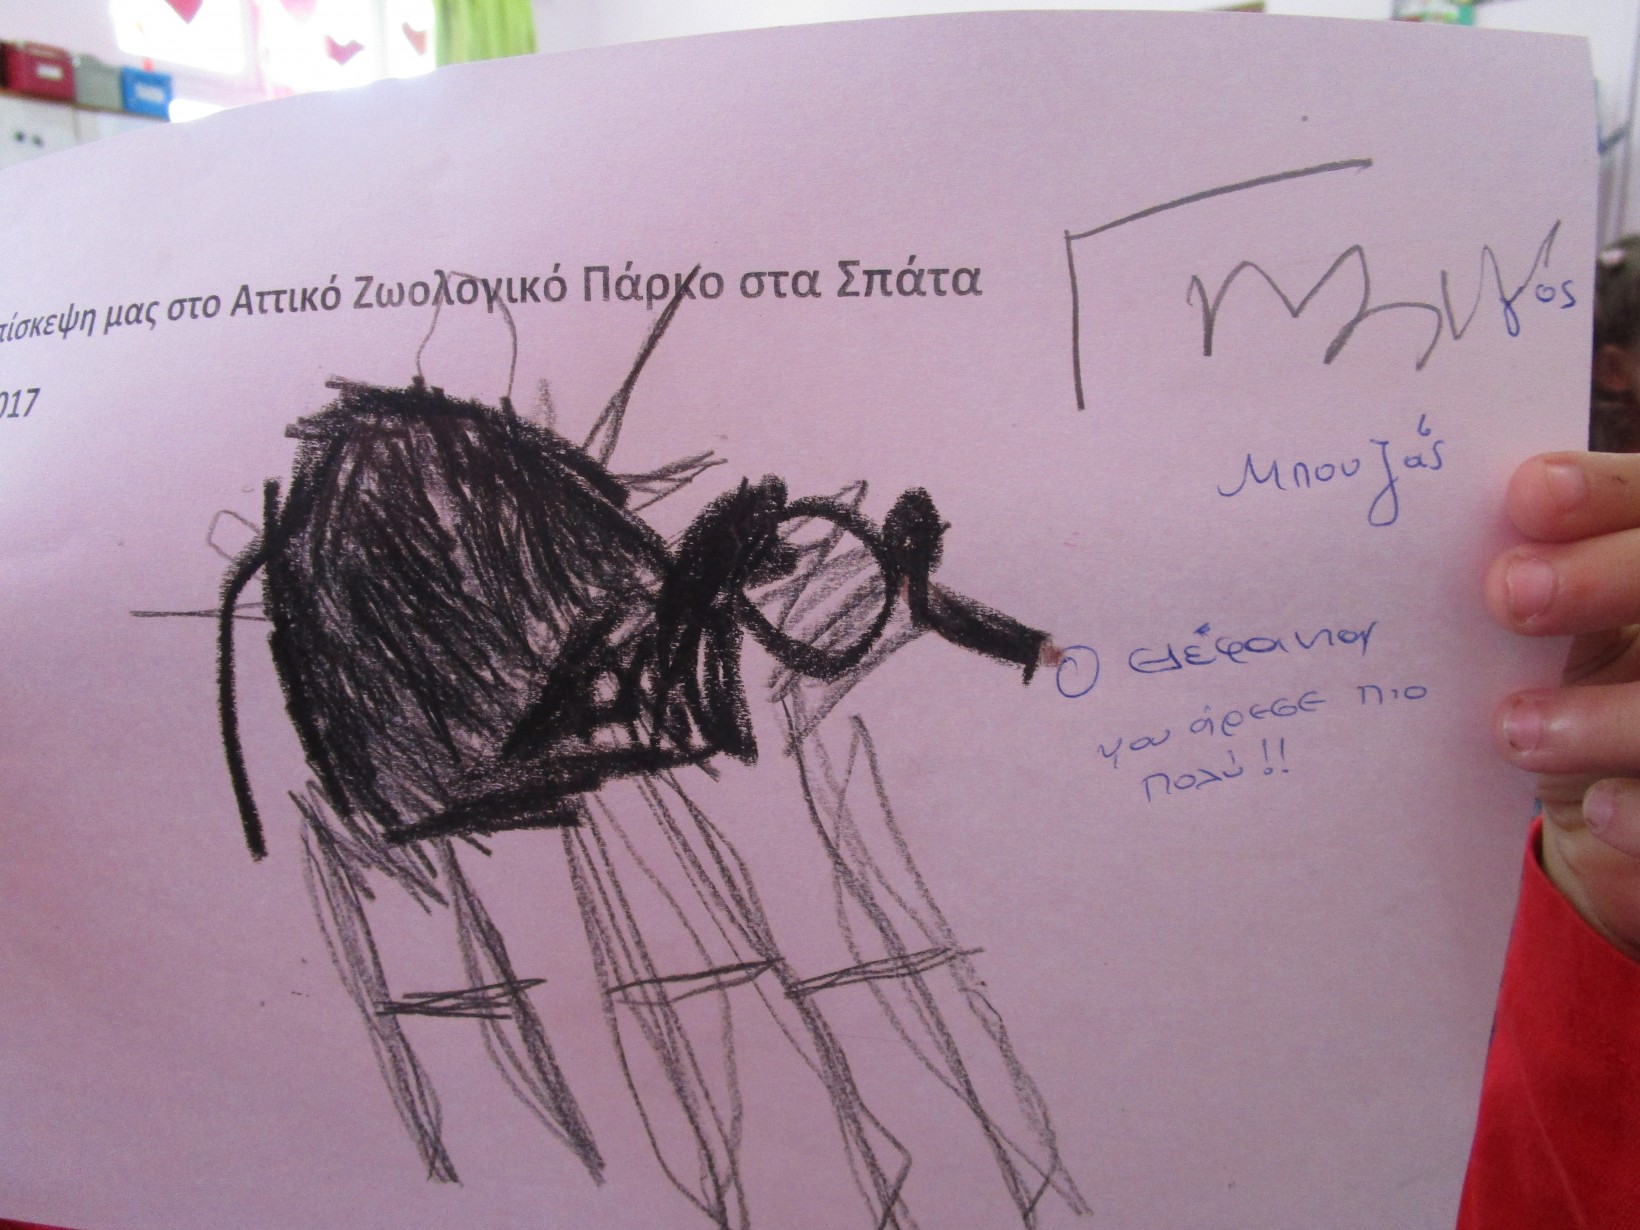 πίσκεψη μας στο Αττικό Ζωολογικό Πάρκο στα Σπάτα
017
Μπουζάς
Ο ελέφαντας
μου άρεσε πιο
πολύ!!